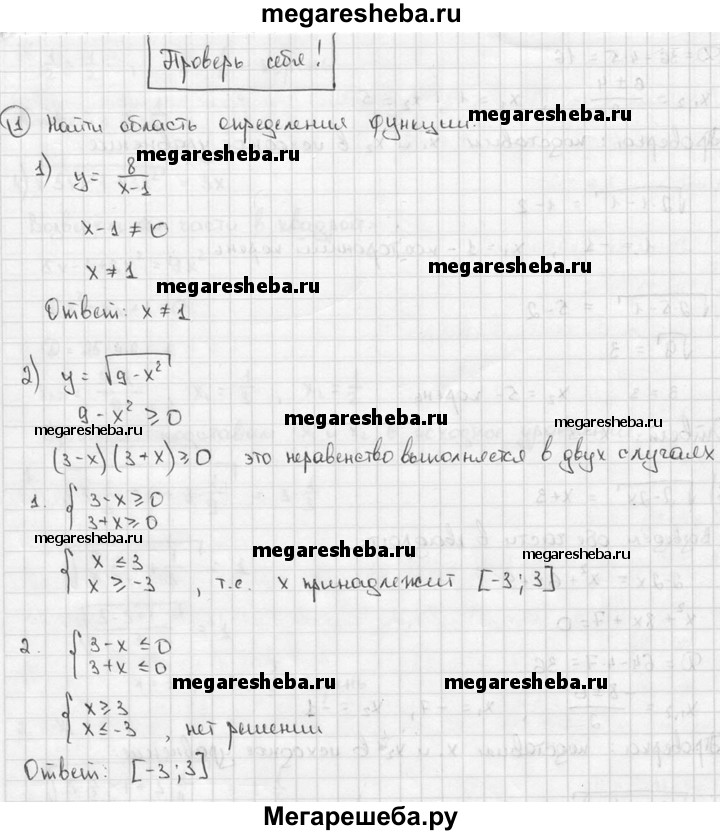 megaresheba.ru
Проверь себя!
1 Найти область определения функции. megaresheba.ru
megaresheba.ru
1) y = 8/(x-1)
x-1 ≠ 0
x ≠ 1
megaresheba.ru megaresheba.ru
Ответ: x ≠ 1
2) y = √(9-x²)
9-x² ≥ 0
megaresheba.ru megaresheba.ru megaresheba.ru
(3-x)(3+x) ≥ 0 это неравенство выполняется в двух случаях
1. { 3-x ≥ 0
3+x ≥ 0
megaresheba.ru megaresheba.ru megaresheba.ru
{ x ≤ 3
x ≥ -3 , т.е. x принадлежит [-3; 3]
2. { 3-x ≤ 0
3+x ≤ 0
megaresheba.ru megaresheba.ru
{ x ≥ 3
x ≤ -3 , нет решении
Ответ: [-3; 3]
Мегарешеба.ру